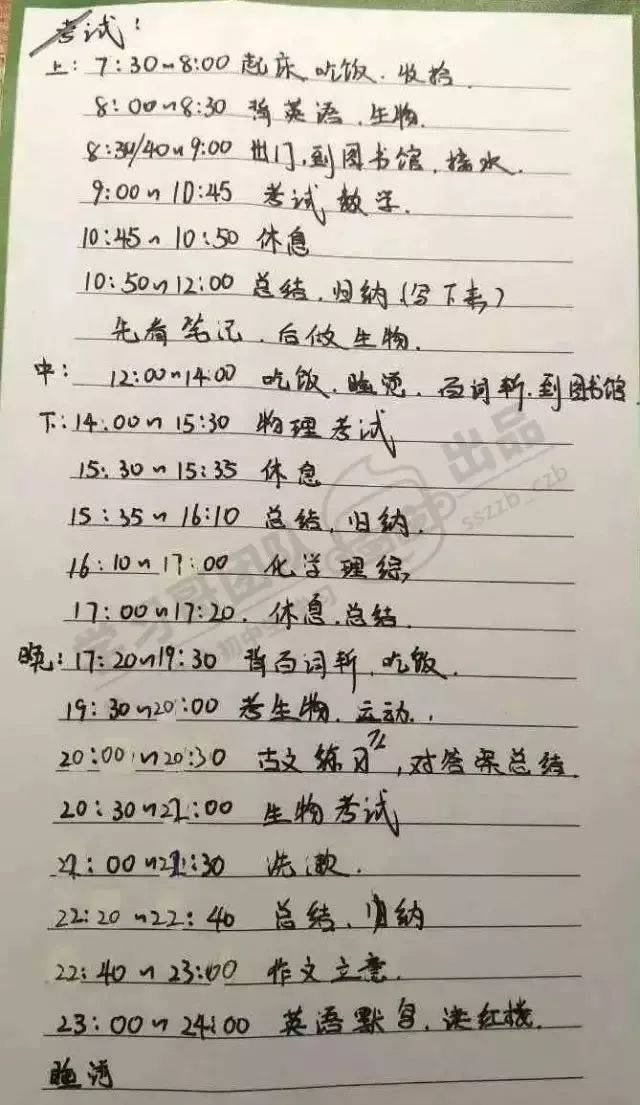 考试:
上: 7:30~8:00 起床 吃饭、收拾
8:00~8:30 背英语、生物.
8:30/40~9:00 出门,到图书馆,接水.
9:00~10:45 考试数学.
10:45~10:50 休息
10:50~12:00 总结、归纳(写下来)
先看笔记、后做生物.
中: 12:00~14:00 吃饭、睡觉、百词斩、到图书馆
下: 14:00~15:30 物理考试
15:30~15:35 休息
15:35~16:10 总结,归纳.
16:10~17:00 化学理综,
17:00~17:20. 休息.总结.
晚: 17:20~19:30 背百词斩,吃饭.
19:30~20:00 考生物、运动.
20:00~20:30 古文练习,对答案总结.
20:30~21:00 生物考试
21:00~21:30 洗漱.
22:20~22:40 总结、归纳
22:40~23:00 作文立意.
23:00~24:00 英语默写、读红楼.
睡觉
学习哥团队 出品
初中生学习
sszzb_czb